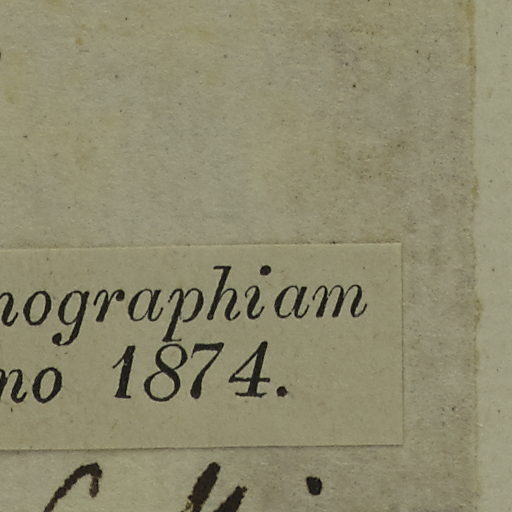 nographiam
no 1874.